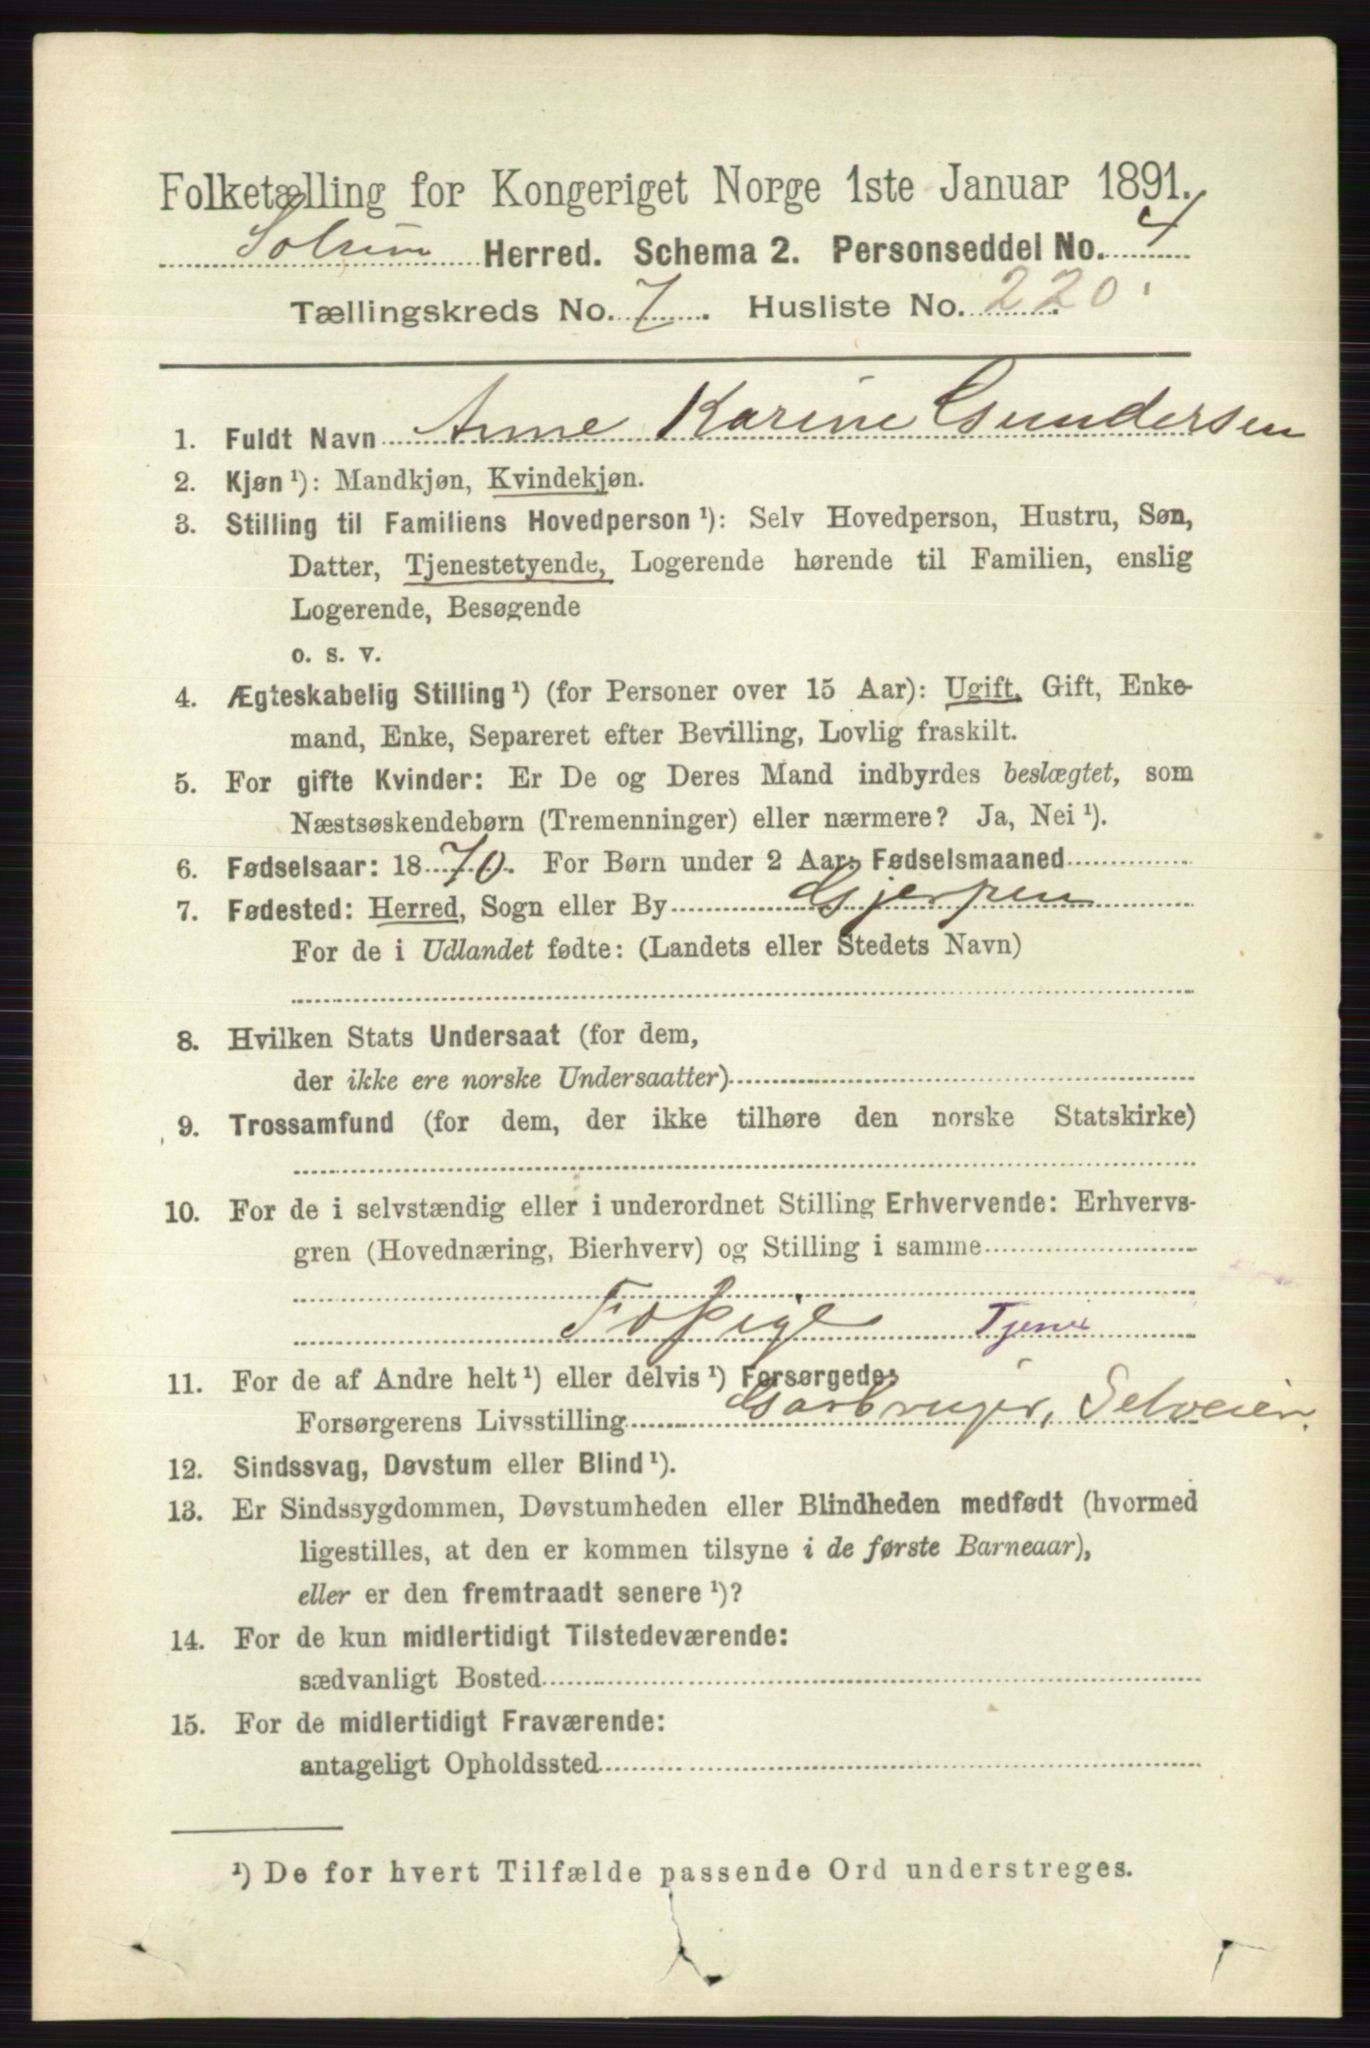 Folketælling for Kongeriget Norge 1ste Januar 1891.
Solum Herred. Schema 2. Personseddel No. 4
Tællingskreds No. 7. Husliste No. 220.
1. Fuldt Navn Anne Karine Gundersen
2. Kjøn ¹): Mandkjøn, Kvindekjøn.
3. Stilling til Familiens Hovedperson ¹): Selv Hovedperson, Hustru, Søn,
Datter, Tjenestetyende, Logerende hørende til Familien, enslig
Logerende, Besøgende
o. s. v.
4. Ægteskabelig Stilling ¹) (for Personer over 15 Aar): Ugift, Gift, Enke-
mand, Enke, Separeret efter Bevilling, Lovlig fraskilt.
5. For gifte Kvinder: Er De og Deres Mand indbyrdes beslægtet, som
Næstsøskendebørn (Tremenninger) eller nærmere? Ja, Nei ¹).
6. Fødselsaar: 1870. For Børn under 2 Aar: Fødselsmaaned
7. Fødested: Herred, Sogn eller By Gjerpen
For de i Udlandet fødte: (Landets eller Stedets Navn)
8. Hvilken Stats Undersaat (for dem,
der ikke ere norske Undersaatter)
9. Trossamfund (for dem, der ikke tilhøre den norske Statskirke)
10. For de i selvstændig eller i underordnet Stilling Erhvervende: Erhvervs-
gren (Hovednæring, Bierhverv) og Stilling i samme
Tjene
11. For de af Andre helt ¹) eller delvis ¹) Forsørgede:
Forsørgerens Livsstilling Garbruger, Selveier.
12. Sindssvag, Døvstum eller Blind ¹).
13. Er Sindssygdommen, Døvstumheden eller Blindheden medfødt (hvormed
ligestilles, at den er kommen tilsyne i de første Barneaar),
eller er den fremtraadt senere ¹)?
14. For de kun midlertidigt Tilstedeværende:
sædvanligt Bosted
15. For de midlertidigt Fraværende:
antageligt Opholdssted
¹) De for hvert Tilfælde passende Ord understreges.